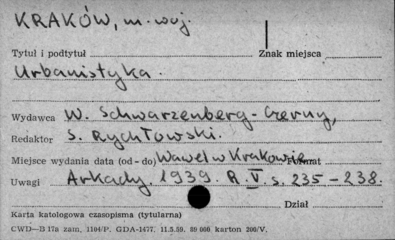 KRAKÓW, m. woj.
Tytuł i podtytuł Znak miejsca
Urbanistyka.
Wydawca W. Schwarzenberg-Czerny,
Redaktor S. Rychłowski.
Miejsce wydania data (od-do) Wawel w Krakowie. Format
Uwagi Arkady. 1939. R. V. s. 235-238.
Dział
Karta katologowa czasopisma (tytularna)
CWD—B 17a zam. 1104/P. GDA-1477. 11.5.59. 69 000 karton 200/V.